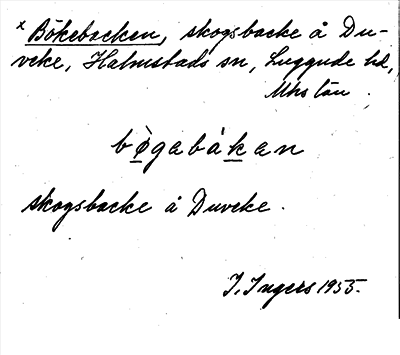 x Bökebacken, skogsbacke å Du-
veke, Halmstads sn, Luggude hd,
Mhs län.
bø̀gabåkan
skogsbacke å Duveke.
I. Ingers 1955.